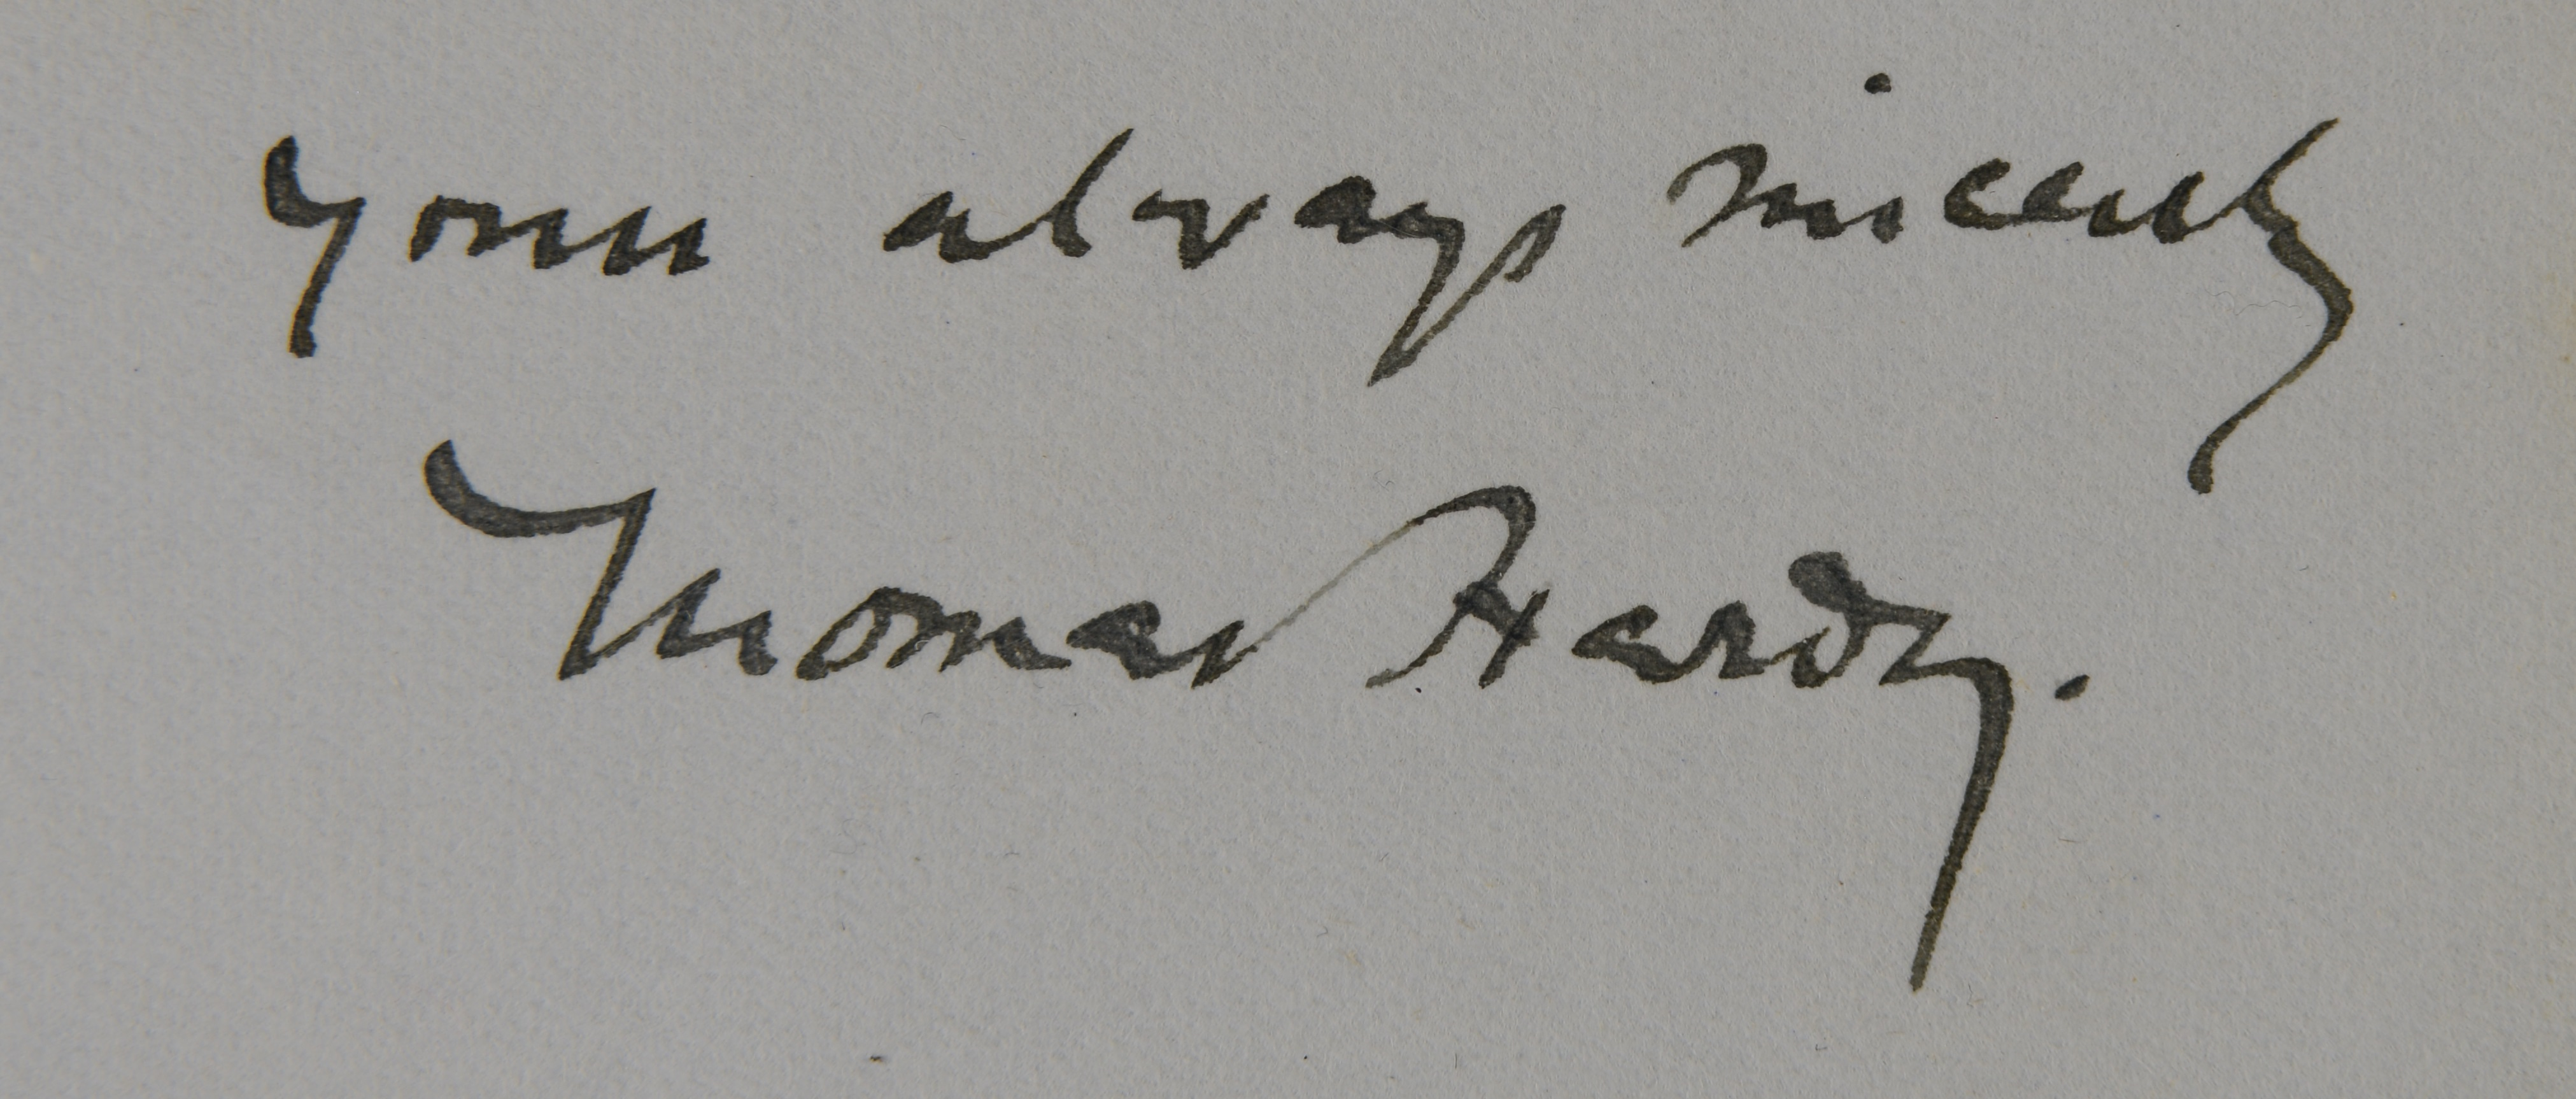 Yours always sincerely
Thomas Hardy.